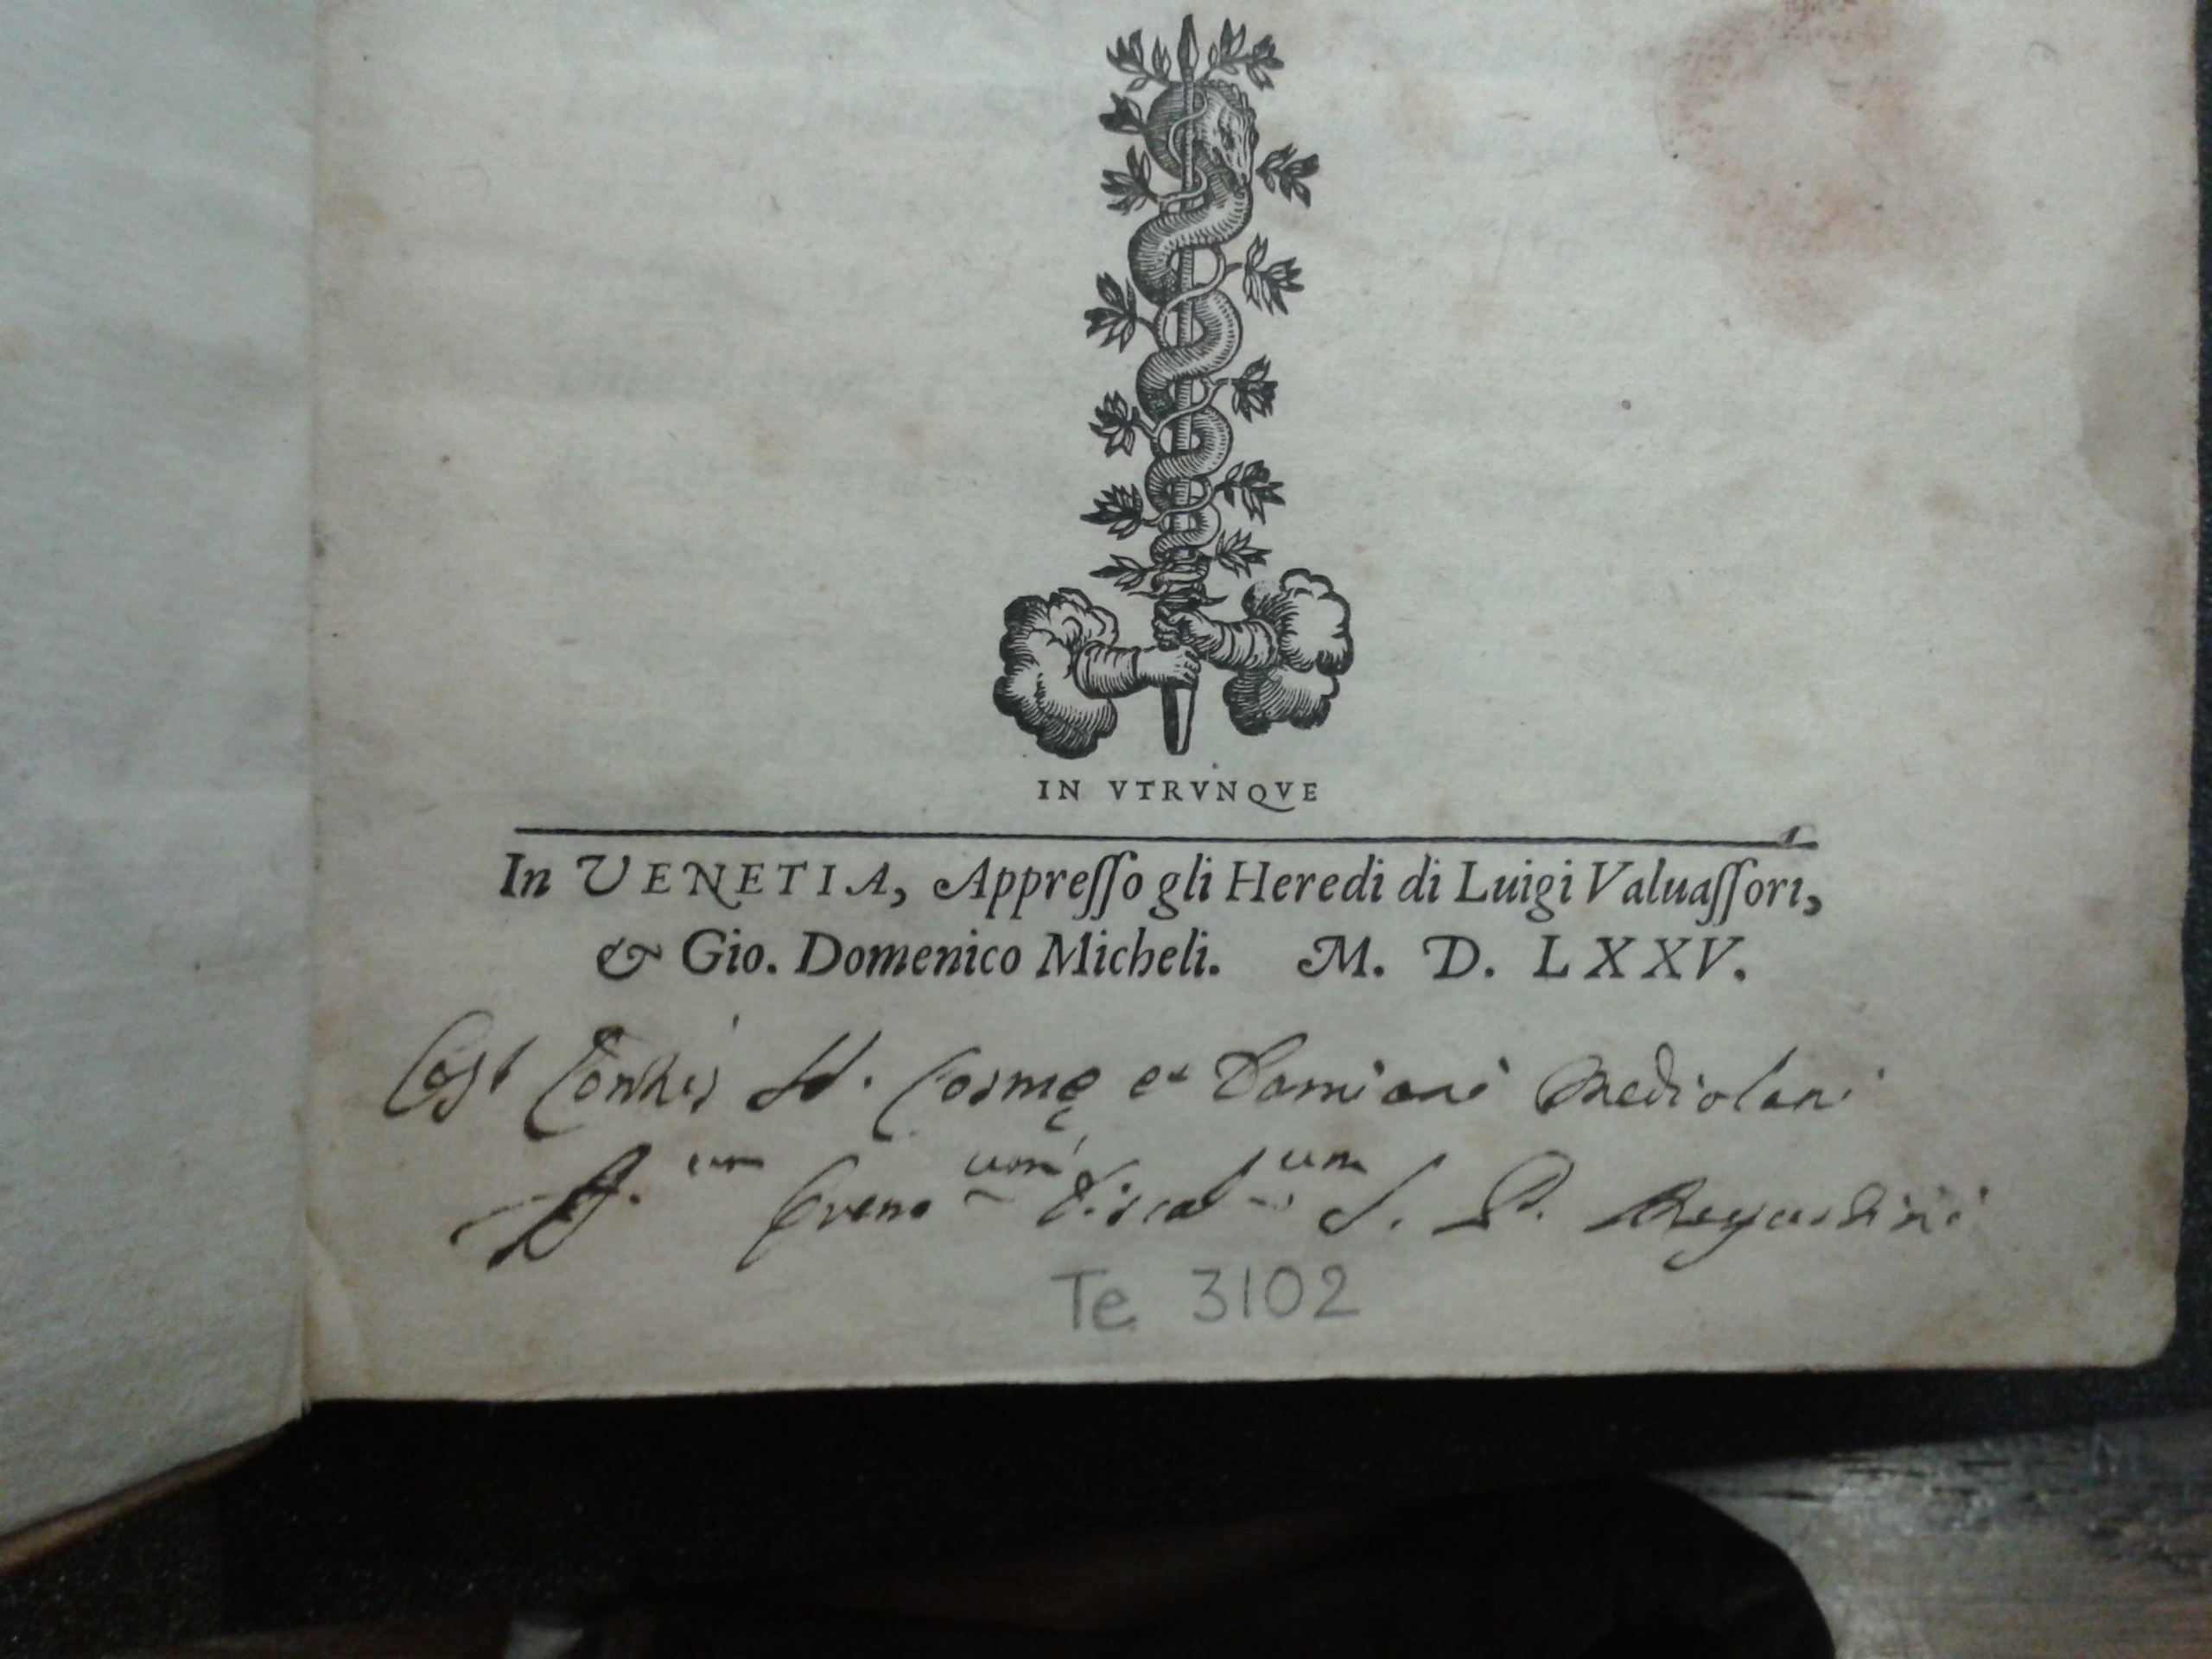 IN VTRVNQVE
In VENETIA, Appreſſo gli Heredi di Luigi Valuaſſori,
& Gio. Domenico Micheli. M. D. LXXV.
SS. Cosmę et Damiani Mediolani
S. P.
Te 3102